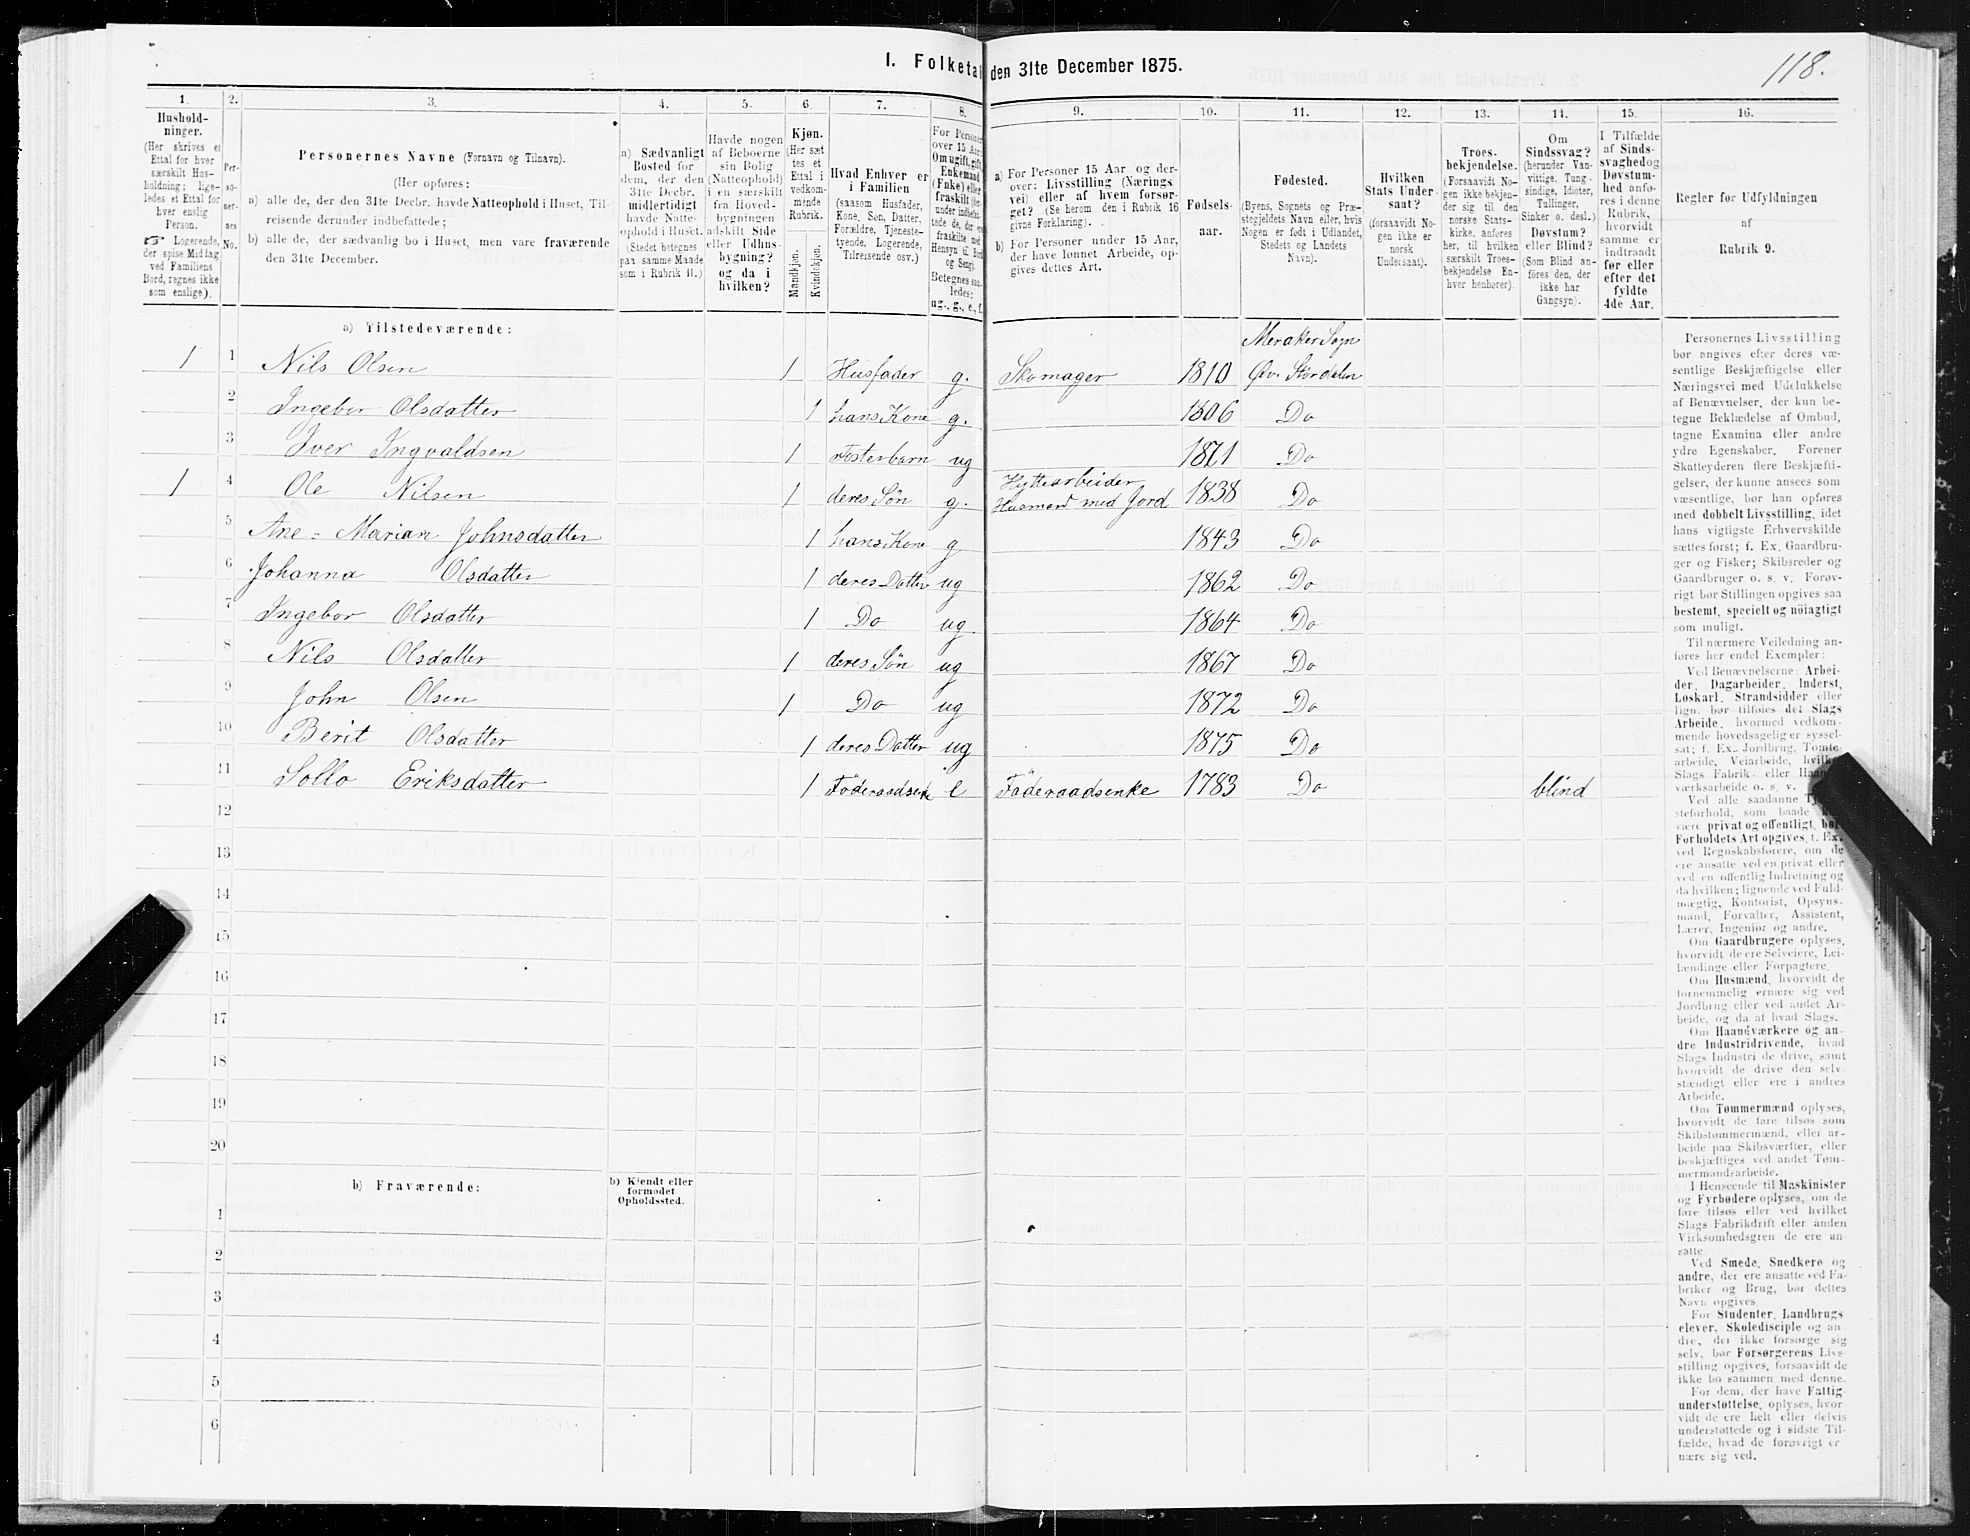 118.
I. Folketal den 31te December 1875.
1. 2. 3. 4. 5. 6. 7. 8. 9. 10. 11. 12. 13. 14. 15. 16.
Hushold-
ninger.
(Her skrives et
Ettal for hver
særskilt Hus-
holdning; lige-
ledes et Ettal for
hver enslig
Person.
☞ Logerende,
der spise Middag
ved Familiens
Bord, regnes ikke
som enslige).
Per-
so-
ner-
nes
No.
Personernes Navne (Fornavn og Tilnavn).
(Her opføres:
a) alle de, der den 31te Decbr. havde Natteophold i Huset, Til-
reisende derunder indbefattede;
b) alle de, der sædvanlig bo i Huset, men vare fraværende
den 31te December.
a) Sædvanligt
Bosted for
dem, der den
31te Decbr.
midlertidigt
havde Natte-
ophold i Huset.
(Stedet betegnes
paa samme Maade
som i Rubrik 11.)
Havde nogen
af Beboerne
sin Bolig
(Natteophold)
i en særskilt
fra Hoved-
bygningen
adskilt Side
eller Udhus-
bygning?
og da i
hvilken?
Kjøn.
(Her sæt
tes et
Ettal i
vedkom-
mende
Rubrik.
Mandkjøn.
Kvindekjøn.
Hvad Enhver er
i Familien
(saasom Husfader,
Kone, Søn, Datter,
Forældre, Tjeneste-
tyende, Logerende,
Tilreisende osv.)
For Personer
over 15 Aar:
Om ugift, gift,
Enkemand
(Enke) eller
fraskilt
Betegnes saa-
ledes:
ug., g., e., f.
a) For Personer 15 Aar og der-
over: Livsstilling (Nærings
vei) eller af hvem forsør-
get? (Se herom den i Rubrik 16
givne Forklaring).
b) For Personer under 15 Aar,
der have lønnet Arbeide, op-
gives dettes Art.
Fødsels-
aar.
Fødested.
(Byens, Sognets og Præ-
stegjeldets Navn eller, hvis
Nogen er født i Udlandet,
Stedets og Landets
Navn).
Hvilken
Stats Under-
saat?
(forsaavidt No-
gen ikke er
norsk
Undersaat).
Troes-
bekjendelse.
(Forsaavidt No-
gen ikke bekjen-
der sig til den
norske Stats-
kirke, anføres
her, til hvilken
særskilt Troes-
bekjendelse En-
hver henhører).
Om
Sindssvag?
(herunder Van-
vittige, Tung-
sindige, Idioter,
Tullinger,
Sinker o. desl.)
Døvstum?
eller Blind?
(Som Blind an-
føres den, der
ikke har
Gangsyn).
I Tilfælde
af Sinds-
svaghed og
Døvstum-
hed anfø-
res i denne
Rubrik,
hvorvidt
samme er
indtraadt
før eller
efter det
fyldte
4de Aar.
Regler for Udfyldningen
af
Rubrik 9.
a) Tilstedeværende:
1 1 Nils Olsen 1 Husfader g. Skomager 1810 Meraker Sogn Øv. Stördalen
2 Ingebor Olsdatter 1 hans Kone g. 1806 Do
3 Iver Ingvaldsen 1 Fosterbarn ug 1871 Do
1 4 Ole Nilsen 1 deres Sön g. Hyttearbeider Husmand med Jord 1838 Do
5 Ane - Marian Johnsdatter 1 hans Kone g 1843 Do
6 Johanna Olsdatter 1 deres Datter ug 1862 Do
7 Ingebor Olsdatter 1 Do ug. 1864 Do
8 Nils Olsdatter 1 deres Sön ug 1867 Do
9 John Olsen 1 Do ug 1872 Do
10 Berit Olsdatter 1 deres Datter ug 1875 Do
11 Sollo Eriksdatter 1 Föderaadsenk e Föderaadsenke 1783 Do blind
12
13
14
15
16
17
18
19
20
b) Fraværende:
b) Kjendt eller
formodet
Opholdssted.
1
2
3
4
5
6
Personernes Livsstilling
bør angives efter deres væ-
sentlige Beskjæftigelse eller
Næringsvei med Udelukkelse
af Benævnelser, der kun be-
tegne Beklædelse af Ombud,
tagne Examina eller andre
ydre Egenskaber. Forener
Skatteyderen flere Beskjæfti-
gelser, der kunne ansees som
væsentlige, bør han opføres
med dobbelt Livsstilling, idet
hans vigtigste Erhvervskilde
sættes først; f. Ex. Gaardbru-
ger og Fisker; Skibsreder og
Gaardbruger o. s. v. Forøv-
rigt bør Stillingen opgives saa
bestemt, specielt og nöiagtigt
som muligt.
Til nærmere Veiledning an-
føres her endel Exempler:
Ved Benævnelserne: Arbei-
der, Dagarbeider, Inderst,
Løskarl, Strandsidder eller
lign. bør tilføies det Slags
Arbeide, hvormed vedkom-
mende hovedsagelig er syssel-
sat; f. Ex. Jordbrug, Tomte-
arbeide, Veiarbeide, hvilket
Slags Fabrik- eller
værksarbeide o. s. v.
Ved alle saadanne
steforhold, som baade
være privat og offentligt, bør
Forholdets Art opgives, f. Ex.
ved Regnskabsførere, om de
ere ansatte ved en privat eller
ved en offentlig Indretning og
da hvilken; lignende ved Fuld-
mægtig, Kontorist, Opsyns-
mand, Forvalter, Assistent,
Lærer, Ingeniør og andre.
Om Gaardbrugere oplyses,
hvorvidt de ere Selveiere, Lei-
lændinge eller Forpagtere.
Om Husmænd, hvorvidt de
fornemmelig ernære sig ved
Jordbrug eller ved andet Ar-
beide, og da af hvad Slags.
Om Haandværkere og an-
dre Industridrivende, hvad
Slags Industri de drive, samt
hvorvidt de drive den selv-
stændigt eller ere i andres
Arbeide.
Om Tømmermænd oplyses,
hvorvidt de fare tilsøs som
Skibstømmermænd, eller ar-
beide paa Skibsværfter, eller
beskjæftiges ved andet Tøm-
mermandsarbeide.
I Henseende til Maskinister
og Fyrbødere oplyses, om de
fare tilsøs eller ved hvilket
Slags Fabrikdrift eller anden
Virksomhedsgren de ere an-
satte.
Ved Smede, Snedkere og
andre, der ere ansatte ved Fa-
briker og Brug, bør dettes
Navn opgives.
For Studenter, Landbrugs
elever, Skoledisciple og an-
dre, der ikke forsørge sig
selv, bør Forsørgerens Livs-
stilling opgives, forsaavidt de
ikke bo sammen med denne.
For dem, der have Fattig-
understøttelse, oplyses, hvor-
vidt de ere helt eller delvis
understøttede og i sidste Til-
fælde, hvad de forøvrigt er
nære sig ved.